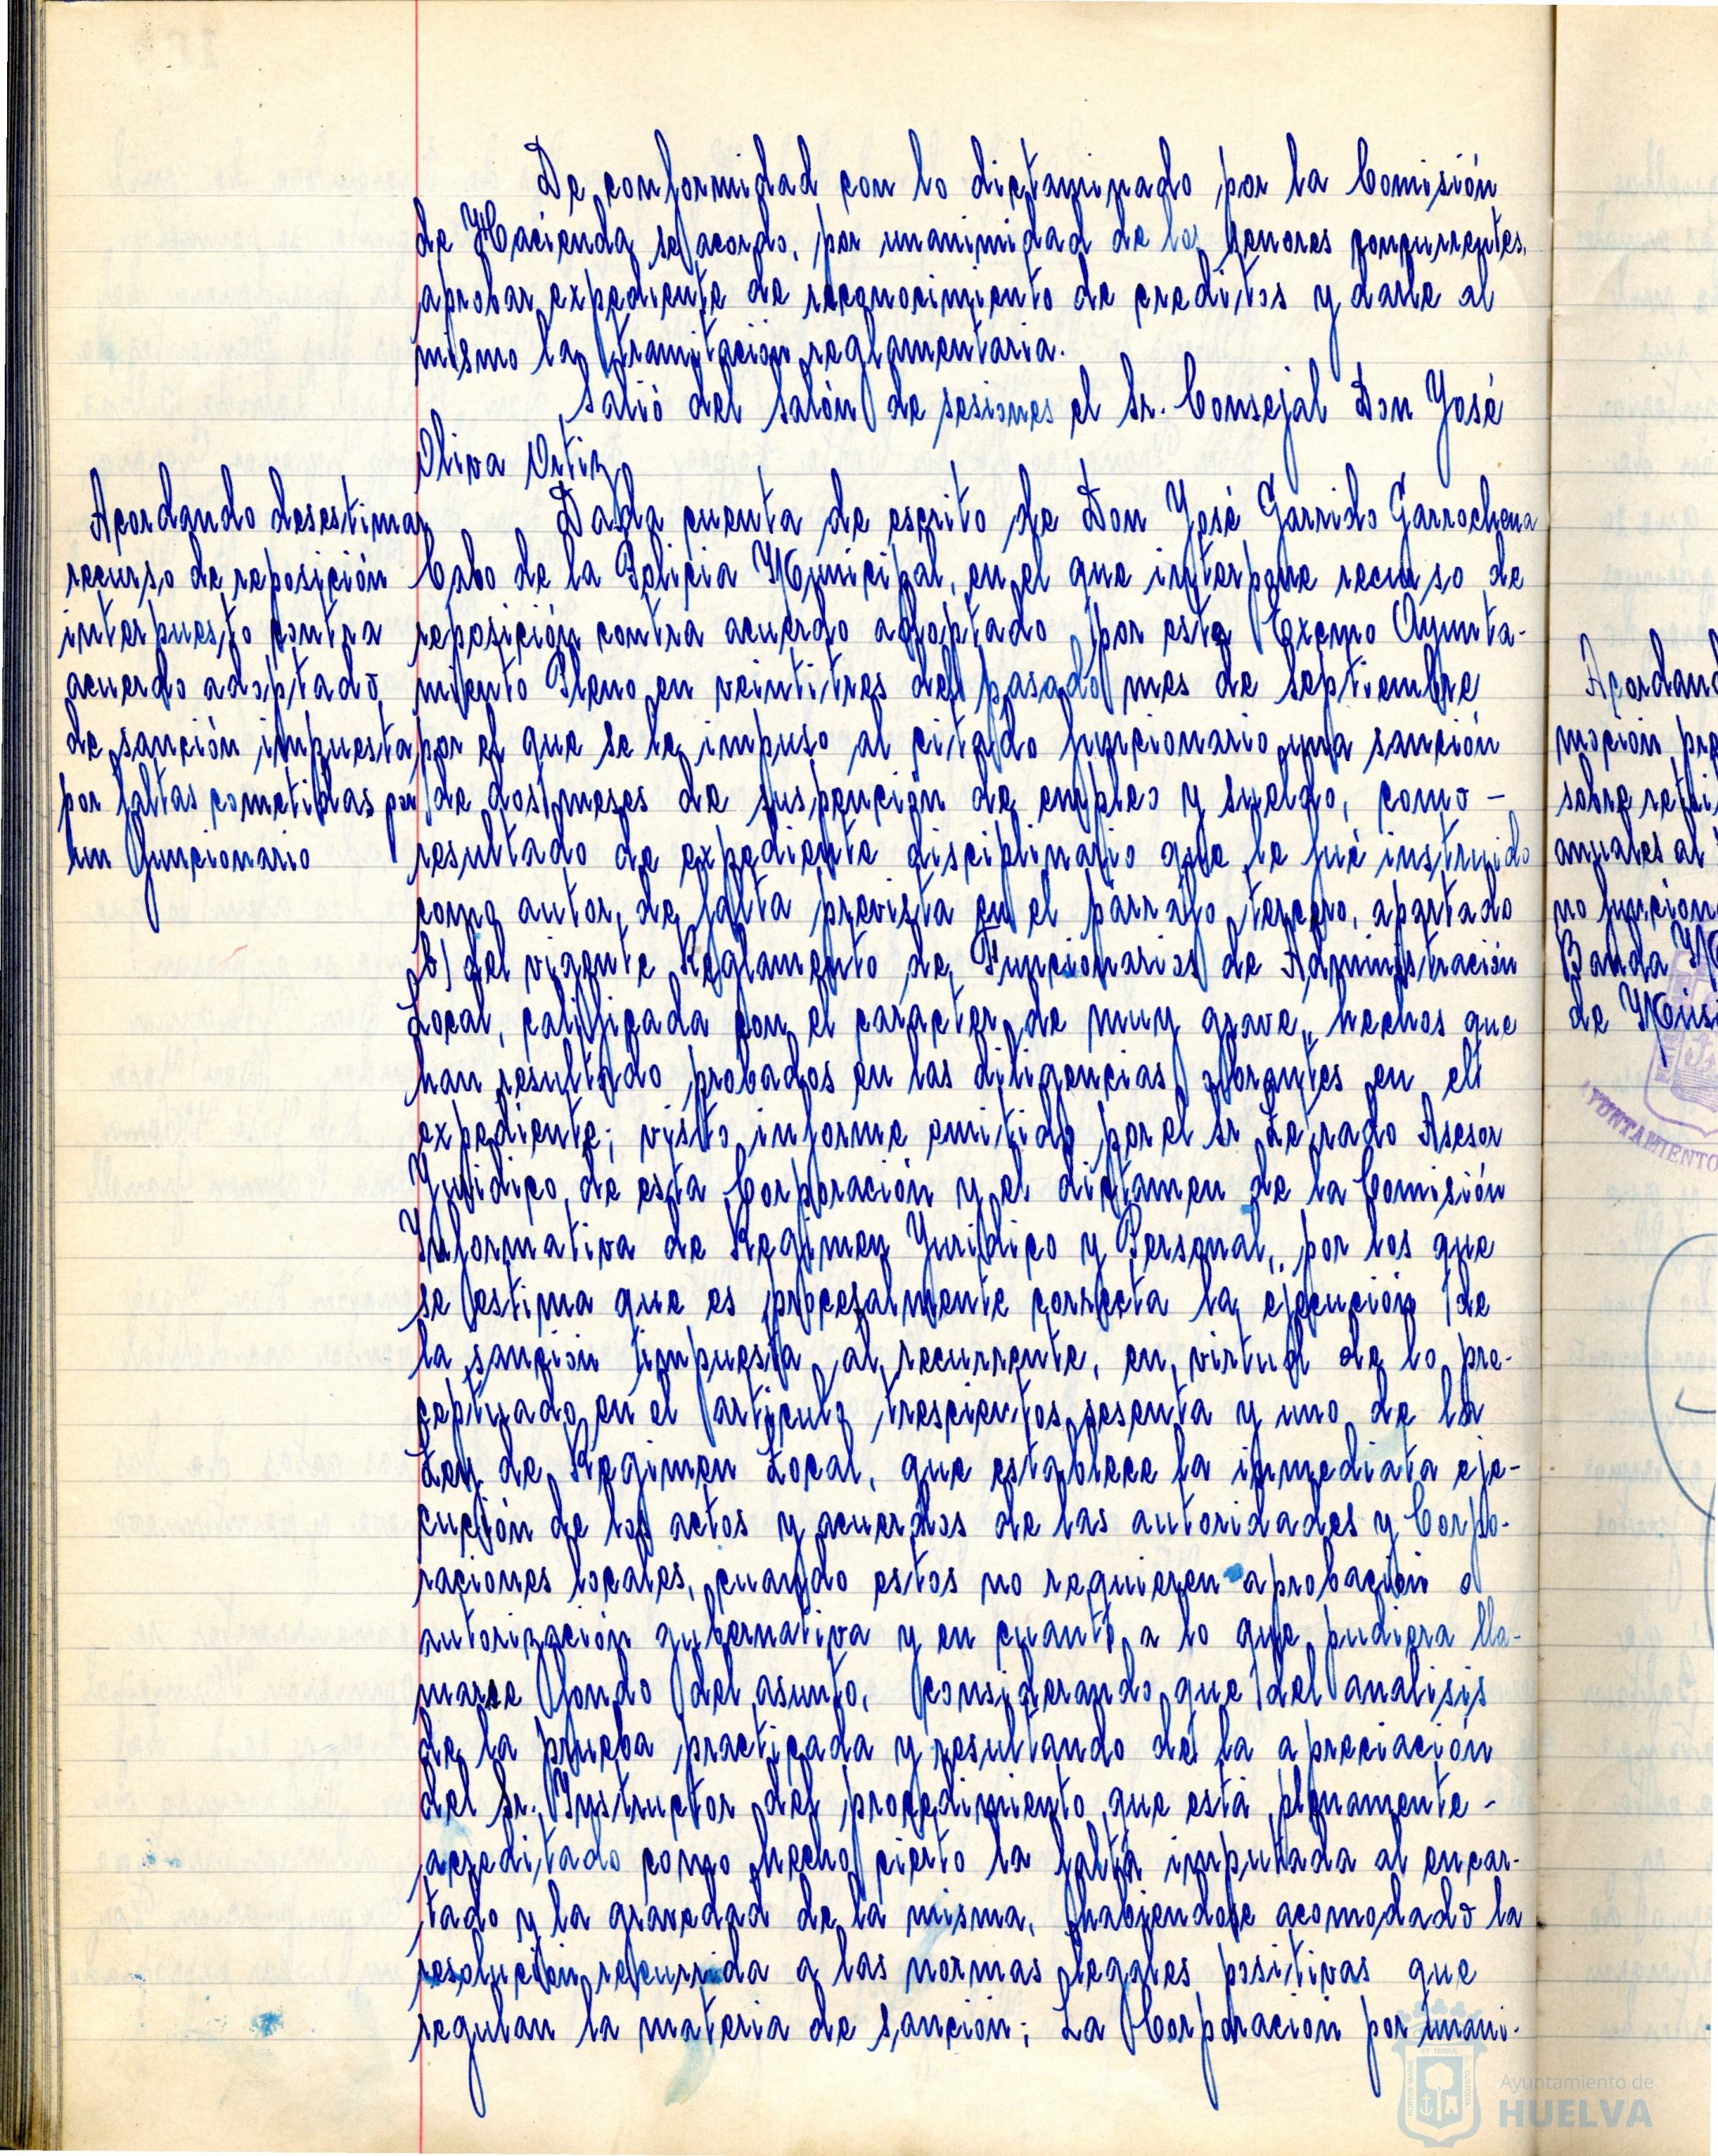 De conformidad con lo dictaminado por la Comisión
de Hacienda se acordo, por unanimidad de los señores concurrentes,
aprobar expediente de reconocimiento de creditos y darle al
mismo la tramitación reglamentaria.
Salió del salón de sesiones el Sr. Consejal Don José
Oliva Ortiz
Acordando desestimar
recurso de reposición
interpuesto contra
acuerdo adoptado
de sanción impuesta
por faltas cometidas por
un funcionario
Dada cuenta de escrito de Don José Garrido Garrochena
Cabo de la Policia Municipal, en el que interpone recurso de
reposición contra acuerdo adoptado por este Excmo Ayunta-
miento Pleno en veintitres del pasado mes de Septiembre
por el que se le impuso al citado funcionario una sanción
de dos meses de suspención de empleo y sueldo, como -
resultado de expediente disciplinario que le fué instruido
como autor, de falta prevista en el párrafo tercero, apartado
b) del vigente Reglamento de Funcionarios de Administración
Local, calificada con el caracter de muy grave, hechos que
han resultado probados en las diligencias obrantes en el
expediente; visto informe emitido por el Sr Letrado Asesor
Juridico de esta Corporación y el dictamen de la Comisión
Informativa de Regimen Juridico y Personal, por los que
se estima que es procesalmente correcta la ejecución de
la sanción impuesta al recurrente, en virtud de lo pre-
ceptuado en el articulo trescientos sesenta y uno de la
Ley de Regimen Local, que establece la inmediata eje-
cución de los actos y acuerdos de las autoridades y Corpo-
raciones locales, cuando estos no requieren aprobación o
autorización gubernativa y en cuanto a lo que pudiera lla-
marse fondo del asunto, considerando que del analisis
de la prueba practicada y resultando de la apreciación
del Sr. Instructor del procedimiento que está plenamente -
acreditado como hecho cierto la falta imputada al encar-
tado y la gravedad de la misma, habiendose acomodado la
resolución recurrida a las normas legales positivas que
regulan la materia de sanción; La Corporación por unani-
Acordand
moción pre
sobre retri
anuales al
no funcion
Banda M
de Músi
AYUNTAMIENTO
Ayuntamiento de
HUELVA